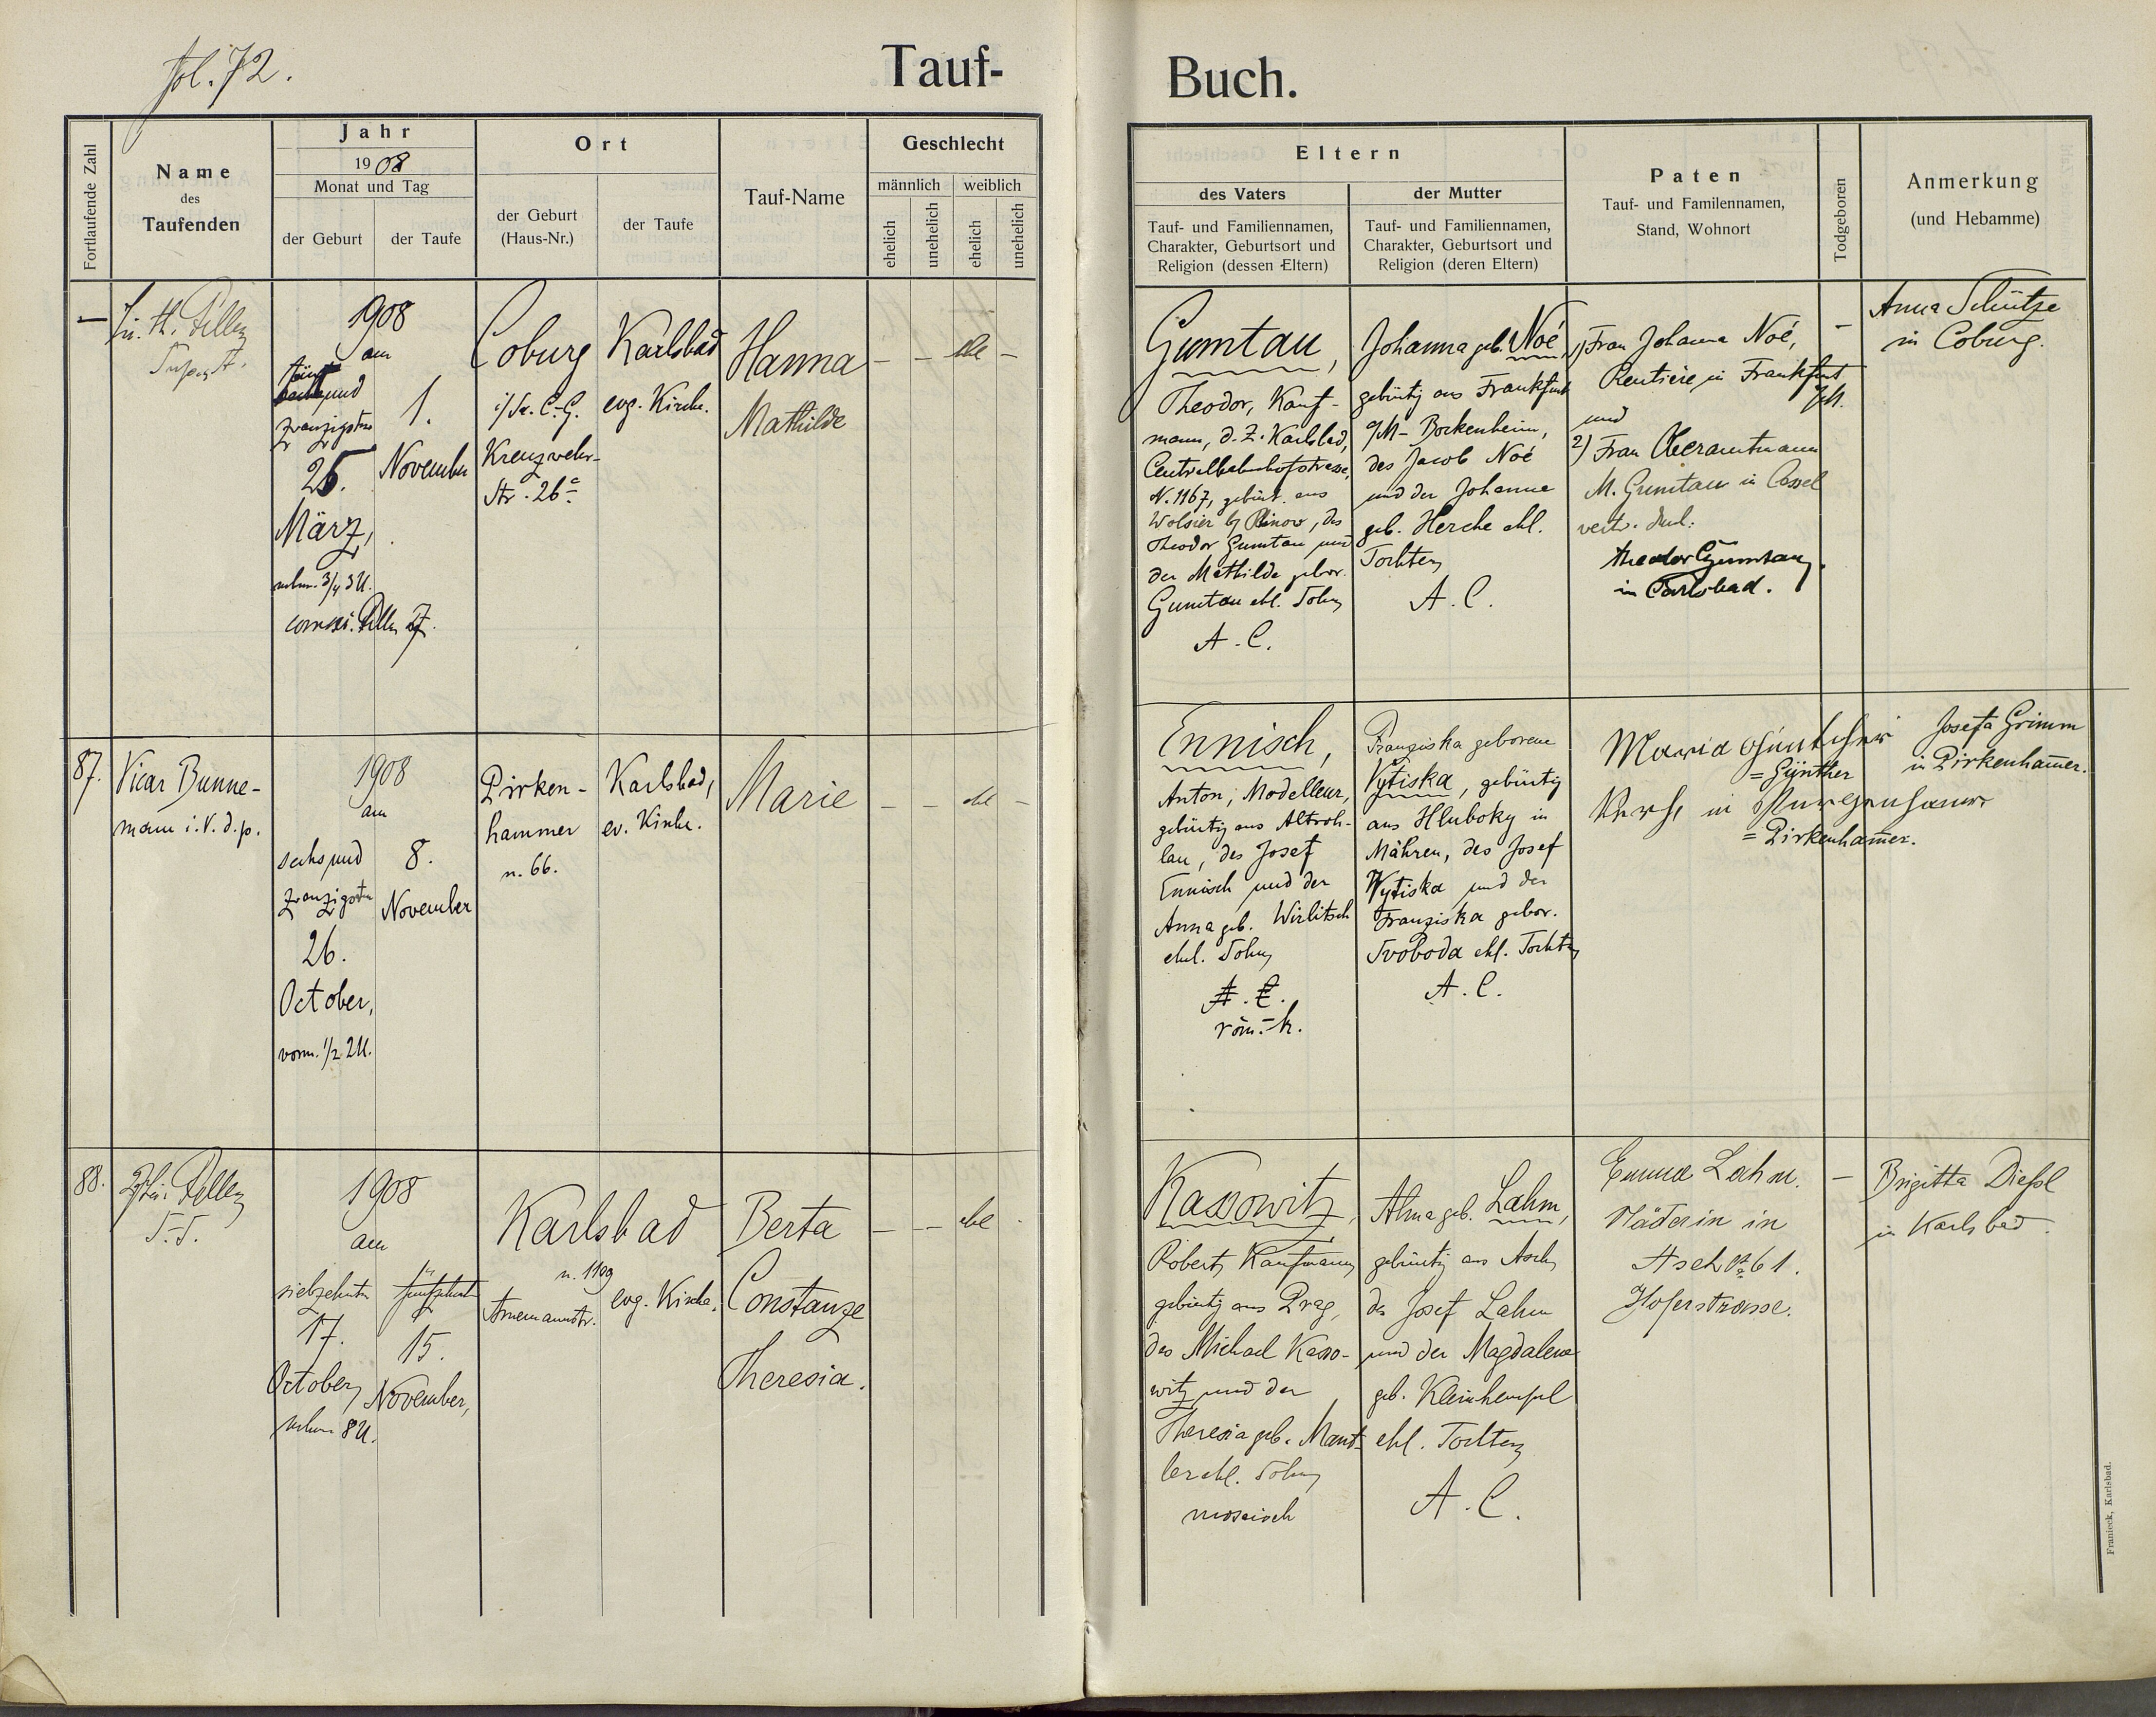 fol. 72.
Tauf-
Buch.
Fortlaufende Zahl
Name
des
Taufenden
Jahr
1908
Monat und Tag
der Geburt
der Taufe
Ort
der Geburt
(Haus-Nr.)
der Taufe
Tauf-Name
Geschlecht
männlich
weiblich
ehelich
unehelich
ehelich
unehelich
Eltern
des Vaters
Tauf- und Familiennamen,
Charakter, Geburtsort und
Religion (dessen Eltern)
der Mutter
Tauf- und Familiennamen,
Charakter, Geburtsort und
Religion (deren Eltern)
Paten
Tauf- und Familennamen,
Stand, Wohnort
Todgeboren
Anmerkung
(und Hebamme)
—
1908
am
und
zwanzigsten
25.
März,
nchm. 3/4 3 U.
1.
November
Coburg
Kreuzwehr-
Str. 26
Karlsbad
evg. Kirche.
Hanna
Mathilde
— — ehel —
Gumtau,
Theodor, Kauf-
mann, d. Z. Karlsbad,
Centralbahnhofstrasse,
N. 1167, gebürt. aus
Wolsier b/ Rhinow, des
Theodor Gumtau und
der Mathilde gebor.
Gumtau ehl. Sohn
A. C.
Johanna geb. Noé,
gebürtig aus Frankfurt
a/M - Bockenheim,
des Jacob Noé
und der Johanna
geb. Herche ehl.
Tochter
A. C.
1) Frau Johanna Noé,
Rentiere in Frankfurt
a/M.
und
2) Frau Oberamtmann
M. Gumtau in Cassel
vertr. durch:
Theodor Gumtau
in Carlsbad.
—
Anna Schütze
in Coburg.
87.
Vicar Bunne-
mann i. V. d. p.
1908
am
sechsund
zwanzigsten
26.
October,
vorm. 1/2 2 U.
8.
November
Pirken-
hammer
n. 66.
Karlsbad,
ev. Kirche.
Marie
— — ehl —
Ennisch,
Anton, Modelleur,
gebürtig aus Altroh-
lau, des Josef
Ennisch und der
Anna geb. Wirlitsch
ehl. Sohn
A. C.
röm.-k.
Franziska geborene
Vytiska, gebürtig
aus Hluboky in
Mähren, des Josef
Vytiska und der
Franziska gebor.
Svoboda ehl. Tochter
A. C.
Maria Günther
= Günther
in Pirkenhammer
= Pirkenham̄er.
Josefa Grimm
in Pirkenham̄er.
88.
1908
am
siebzehnten
17.
October,
nchm 8 U.
fünfzehnten
15.
November,
Karlsbad
n. 1109
evg. Kirche.
Berta
Constanze
Theresia.
— — ehel
Kassowitz,
Robert, Kaufmann
gebürtig aus Prag,
des Michael Kasso-
witz und der
Theresia geb. Mand-
ler ehl. Sohn
mosaisch
Alma geb. Lahm,
gebürtig aus Asch,
des Josef Lahm
und der Magdalena
geb. Kleinhempel
ehl. Tochter
A. C.
Emma Lahm.
Näderin in
Asch 61.
Hoferstrasse.
—
Brigitta Dießl
in Karlsbad.
Franieck, Karlsbad.